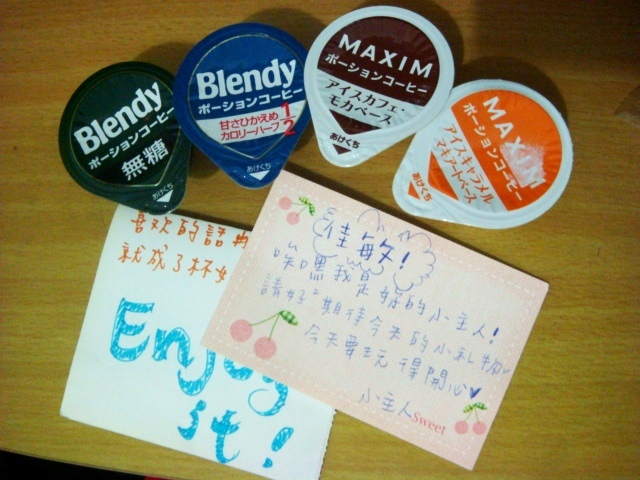 Blendy
ポーションコーヒー
無糖
あけくち
Blendy
ポーションコーヒー
甘さひかえめ
カロリーハーフ 1/2
あけくち
MAXIM
ポーションコーヒー
アイスカフェ・
モカベース
あけくち
MAXIM
ポーションコーヒー
アイスキャラメル
マキアートベース
あけくち
喜欢的話
就成了杯
Enjoy
it!
佳敏!
我是妳的小主人!
請好好期待今天的小礼物~
今天要玩得開心♥
小主人
Sweet